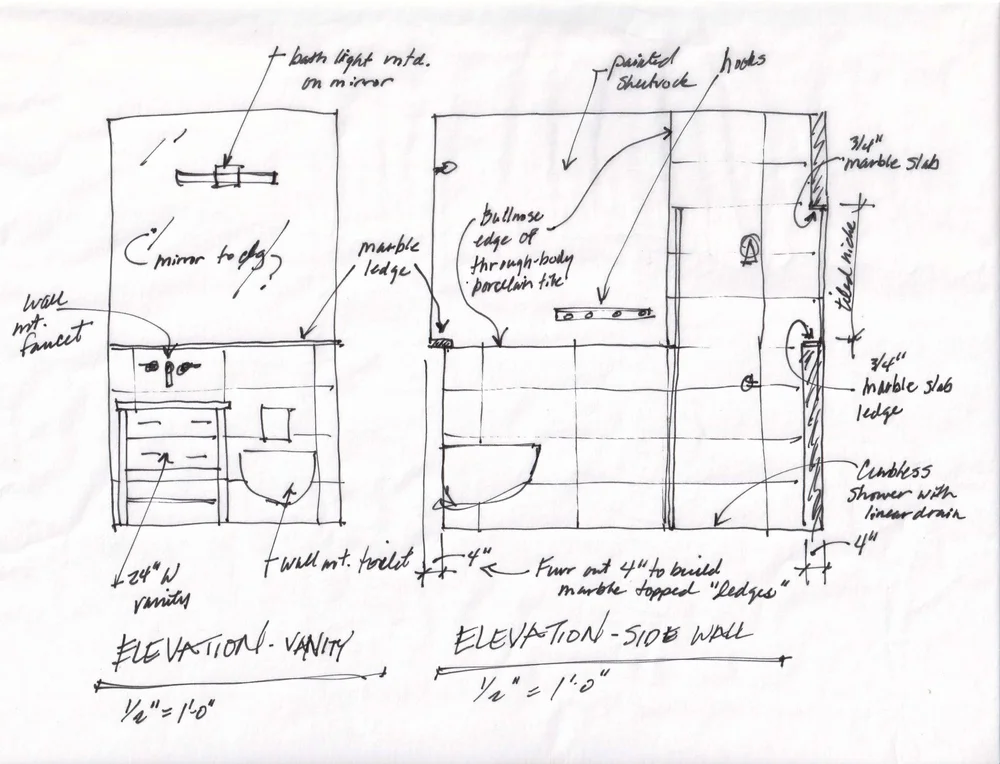 bath light mtd.
on mirror
painted
sheetrock
hooks
3/4"
marble slab
Bullnose
edge of
through-body
porcelain tile
mirror to clg?
marble
ledge
tiled niche
wall
mt.
faucet
3/4"
marble slab
ledge
Curbless
shower with
linear drain
4"
24" W
vanity
wall mt. toilet
4"
Furr out 4" to build
marble topped "ledges"
ELEVATION - VANITY
1/2" = 1'-0"
ELEVATION - SIDE WALL
1/2" = 1'-0"